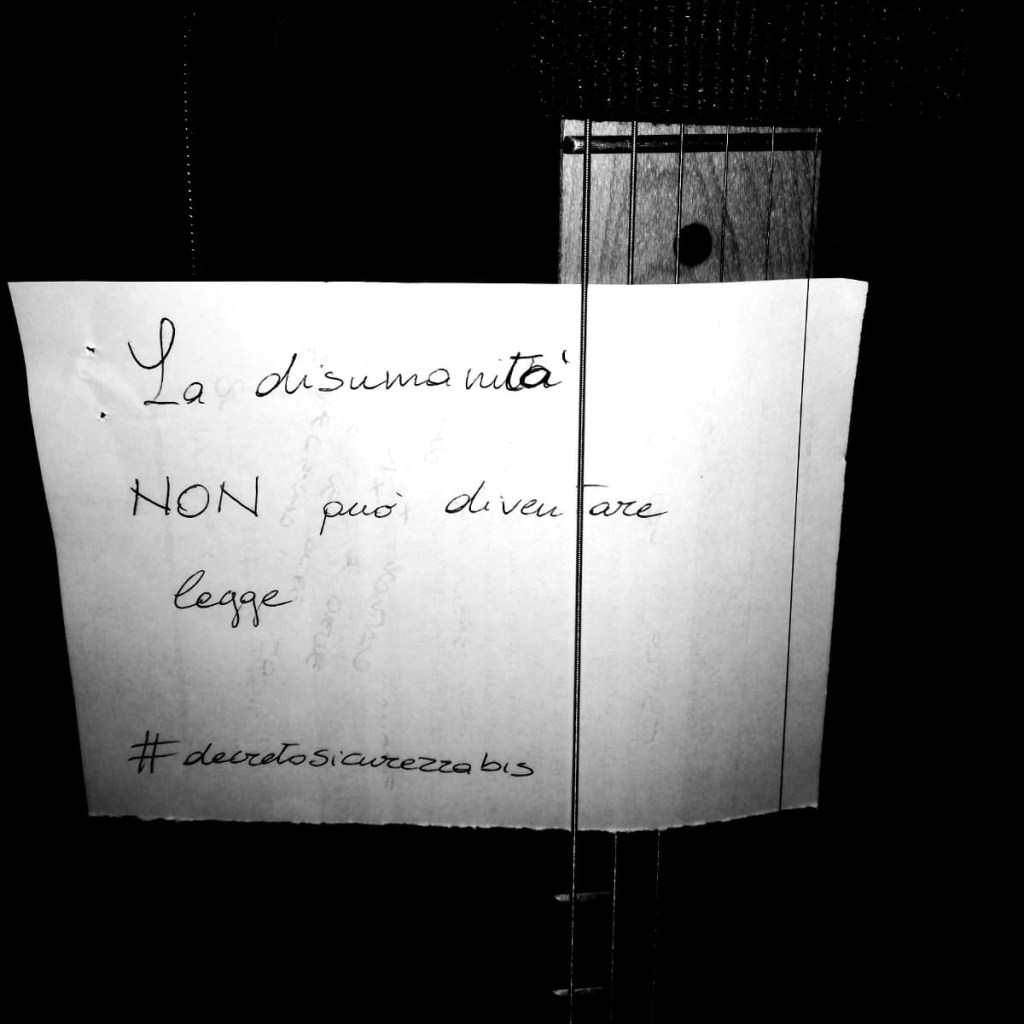 La disumanità
NON può diventare
legge
#decretosicurezzabis